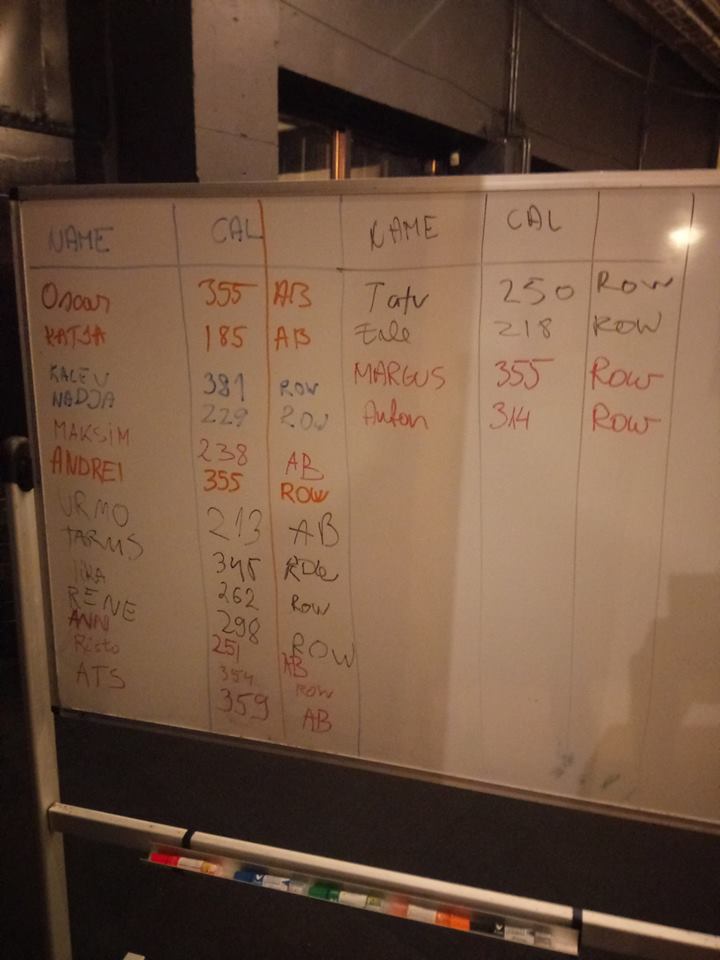 NAME CAL NAME CAL
Oscar 355 AB Tatu 250 ROW
KATJA 185 AB 218 ROW
KALEV 381 ROW MARGUS 355 ROW
NADJA 229 ROW Anton 314 ROW
MAKSIM 238 AB
ANDREI 355 ROW
URMO 213 AB
TARMS 345 ROW
262 ROW
RENE 298 ROW
ANN 251 AB
Risto 354 ROW
ATS 359 AB